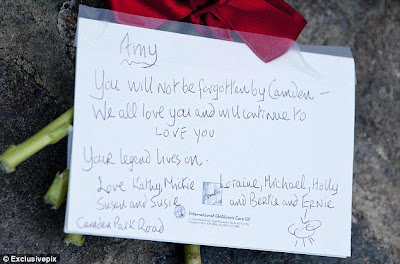 Amy
You will not be forgotten by Camden –
We all love you and will continue to
LOVE YOU
Your legend lives on.
Love Kathy, Mickie
Susan and Susie
Loraine, Michael, Holly
and Bertie and ERNIE
International Children's Care UK
Camden Park Road
© Exclusivepix